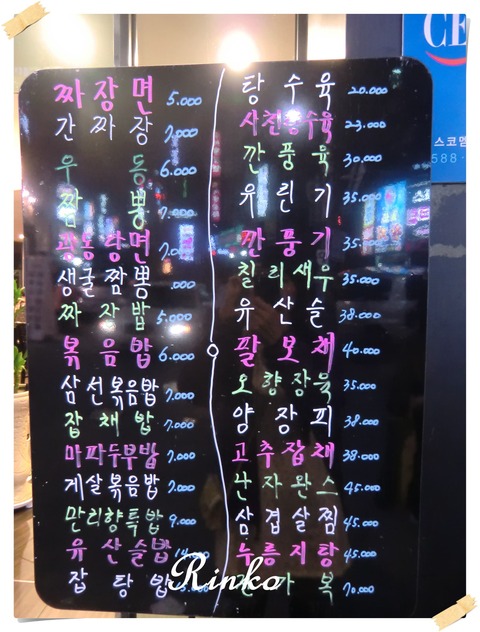 짜장면 5.000
간짜장 7.000
우동 6.000
짬뽕 7.000
광동탕면
생굴짬뽕
짜장밥 5.000
볶음밥 6.000
삼선볶음밥 7.000
잡채밥 7.000
마파두부밥 7.000
게살볶음밥 7.000
만리향특밥 9.000
유산슬밥
잡탕밥
탕수육 20.000
사천탕수육 23.000
깐풍육 30.000
유린기 35.000
깐풍기 35.
칠리새우 35.000
유산슬 38.000
팔보채 40.000
오향장육 35.000
양장피 38.000
고추잡채 38.000
난자완스 45.000
삼겹살찜 45.000
누릉지탕 45.000
복 70.000
CE
스코
588
Rinko